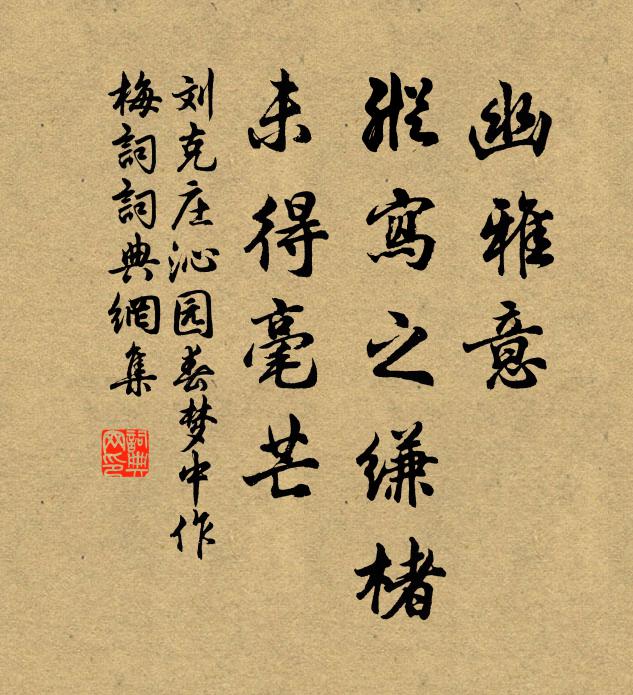 幽雅意
縱寫之缣楮
未得毫芒
刘克庄沁园春梦中作
梅詞詞典網集
詞典网印